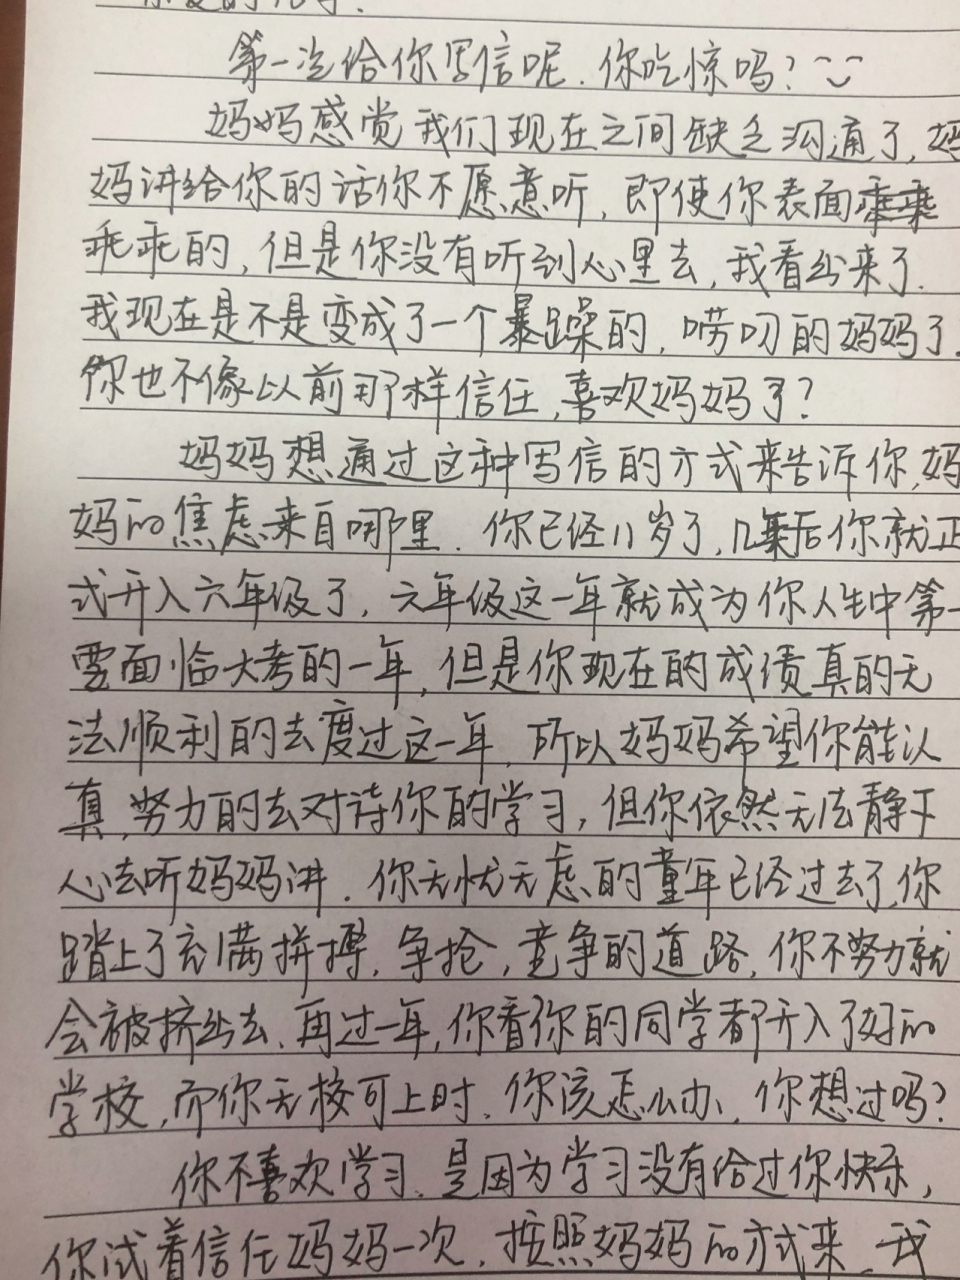 第一次给你写信呢.你吃惊吗?
妈妈感觉我们现在之间缺乏沟通了,妈
妈讲给你的话你不愿意听,即使你表面
乖乖的,但是你没有听到心里去,我看出来了.
我现在是不是变成了一个暴躁的,唠叨的妈妈了.
你也不像以前那样信任,喜欢妈妈了?
妈妈想通过这种写信的方式来告诉你,妈
妈的焦虑来自哪里.你已经11岁了,几后你就正
式升入六年级了,六年级这一年就成为你人生中第一
要面临大考的一年,但是你现在的成绩真的无
法顺利的去度过这一年,所以妈妈希望你能认
真,努力的去对待你的学习,但你依然无法静下
心去听妈妈讲.你无忧无虑的童年已经过去了,你
踏上了充满拼搏,争抢,竞争的道路,你不努力就
会被挤出去,再过一年,你看你的同学都升入了好的
学校,而你无校可上时,你该怎么办,你想过吗?
你不喜欢学习,是因为学习没有给过你快乐,
你试着信任妈妈一次,按照妈妈的方式来,我